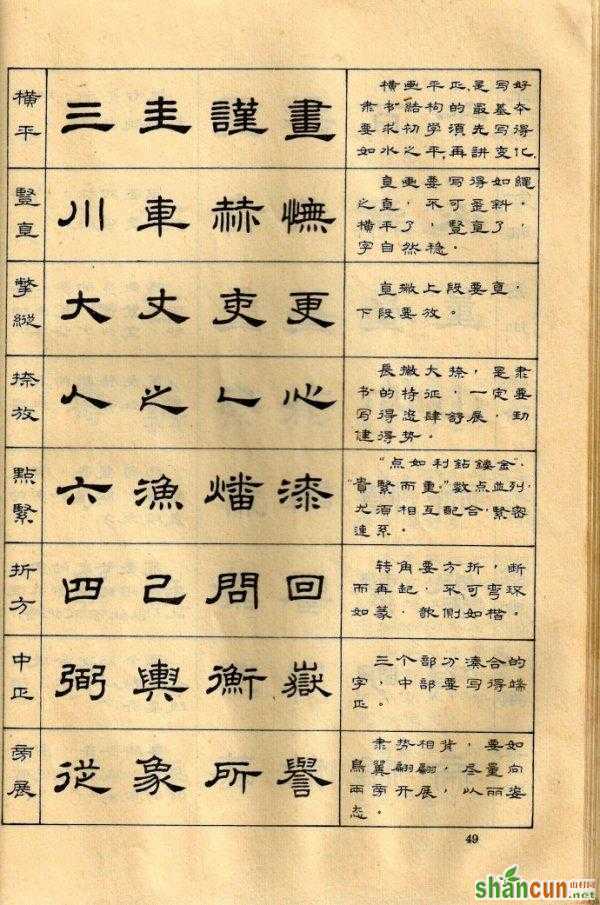 橫平
三 圭 謹 畫
横画平正是写好
隶书结构的最基本
要求初学須先写得
如水之平，再讲变化.
豎直
川 車 赫 憮
直画要写得如繩
之直，不可歪斜。
横平了，豎直了，
字自然稳。
撆縱
大 丈 吏 更
直撇上段要直，
下段要放。
捺放
人 之 乀 心
長撇大捺，是隶
书的特征，一定要
写得恣肆舒展，劲
健得势。
點緊
六 漁 燔 漆
“点如利鉆鏤金”，
“貴緊而重。”数点並列，
尤須相互配合，緊密
連系。
折方
四 己 問 回
转角要方折，断
而再起，不可弯环
如篆，欹侧如楷。
中正
弼 輿 衡 嶽
三个部分湊合的
字，中部要写得端
正。
旁展
從 象 所 譽
隶势相背，要如
鳥翼翩翩，尽量向
两旁开展，以丽姿
态。
49
shancun
山村网
.net